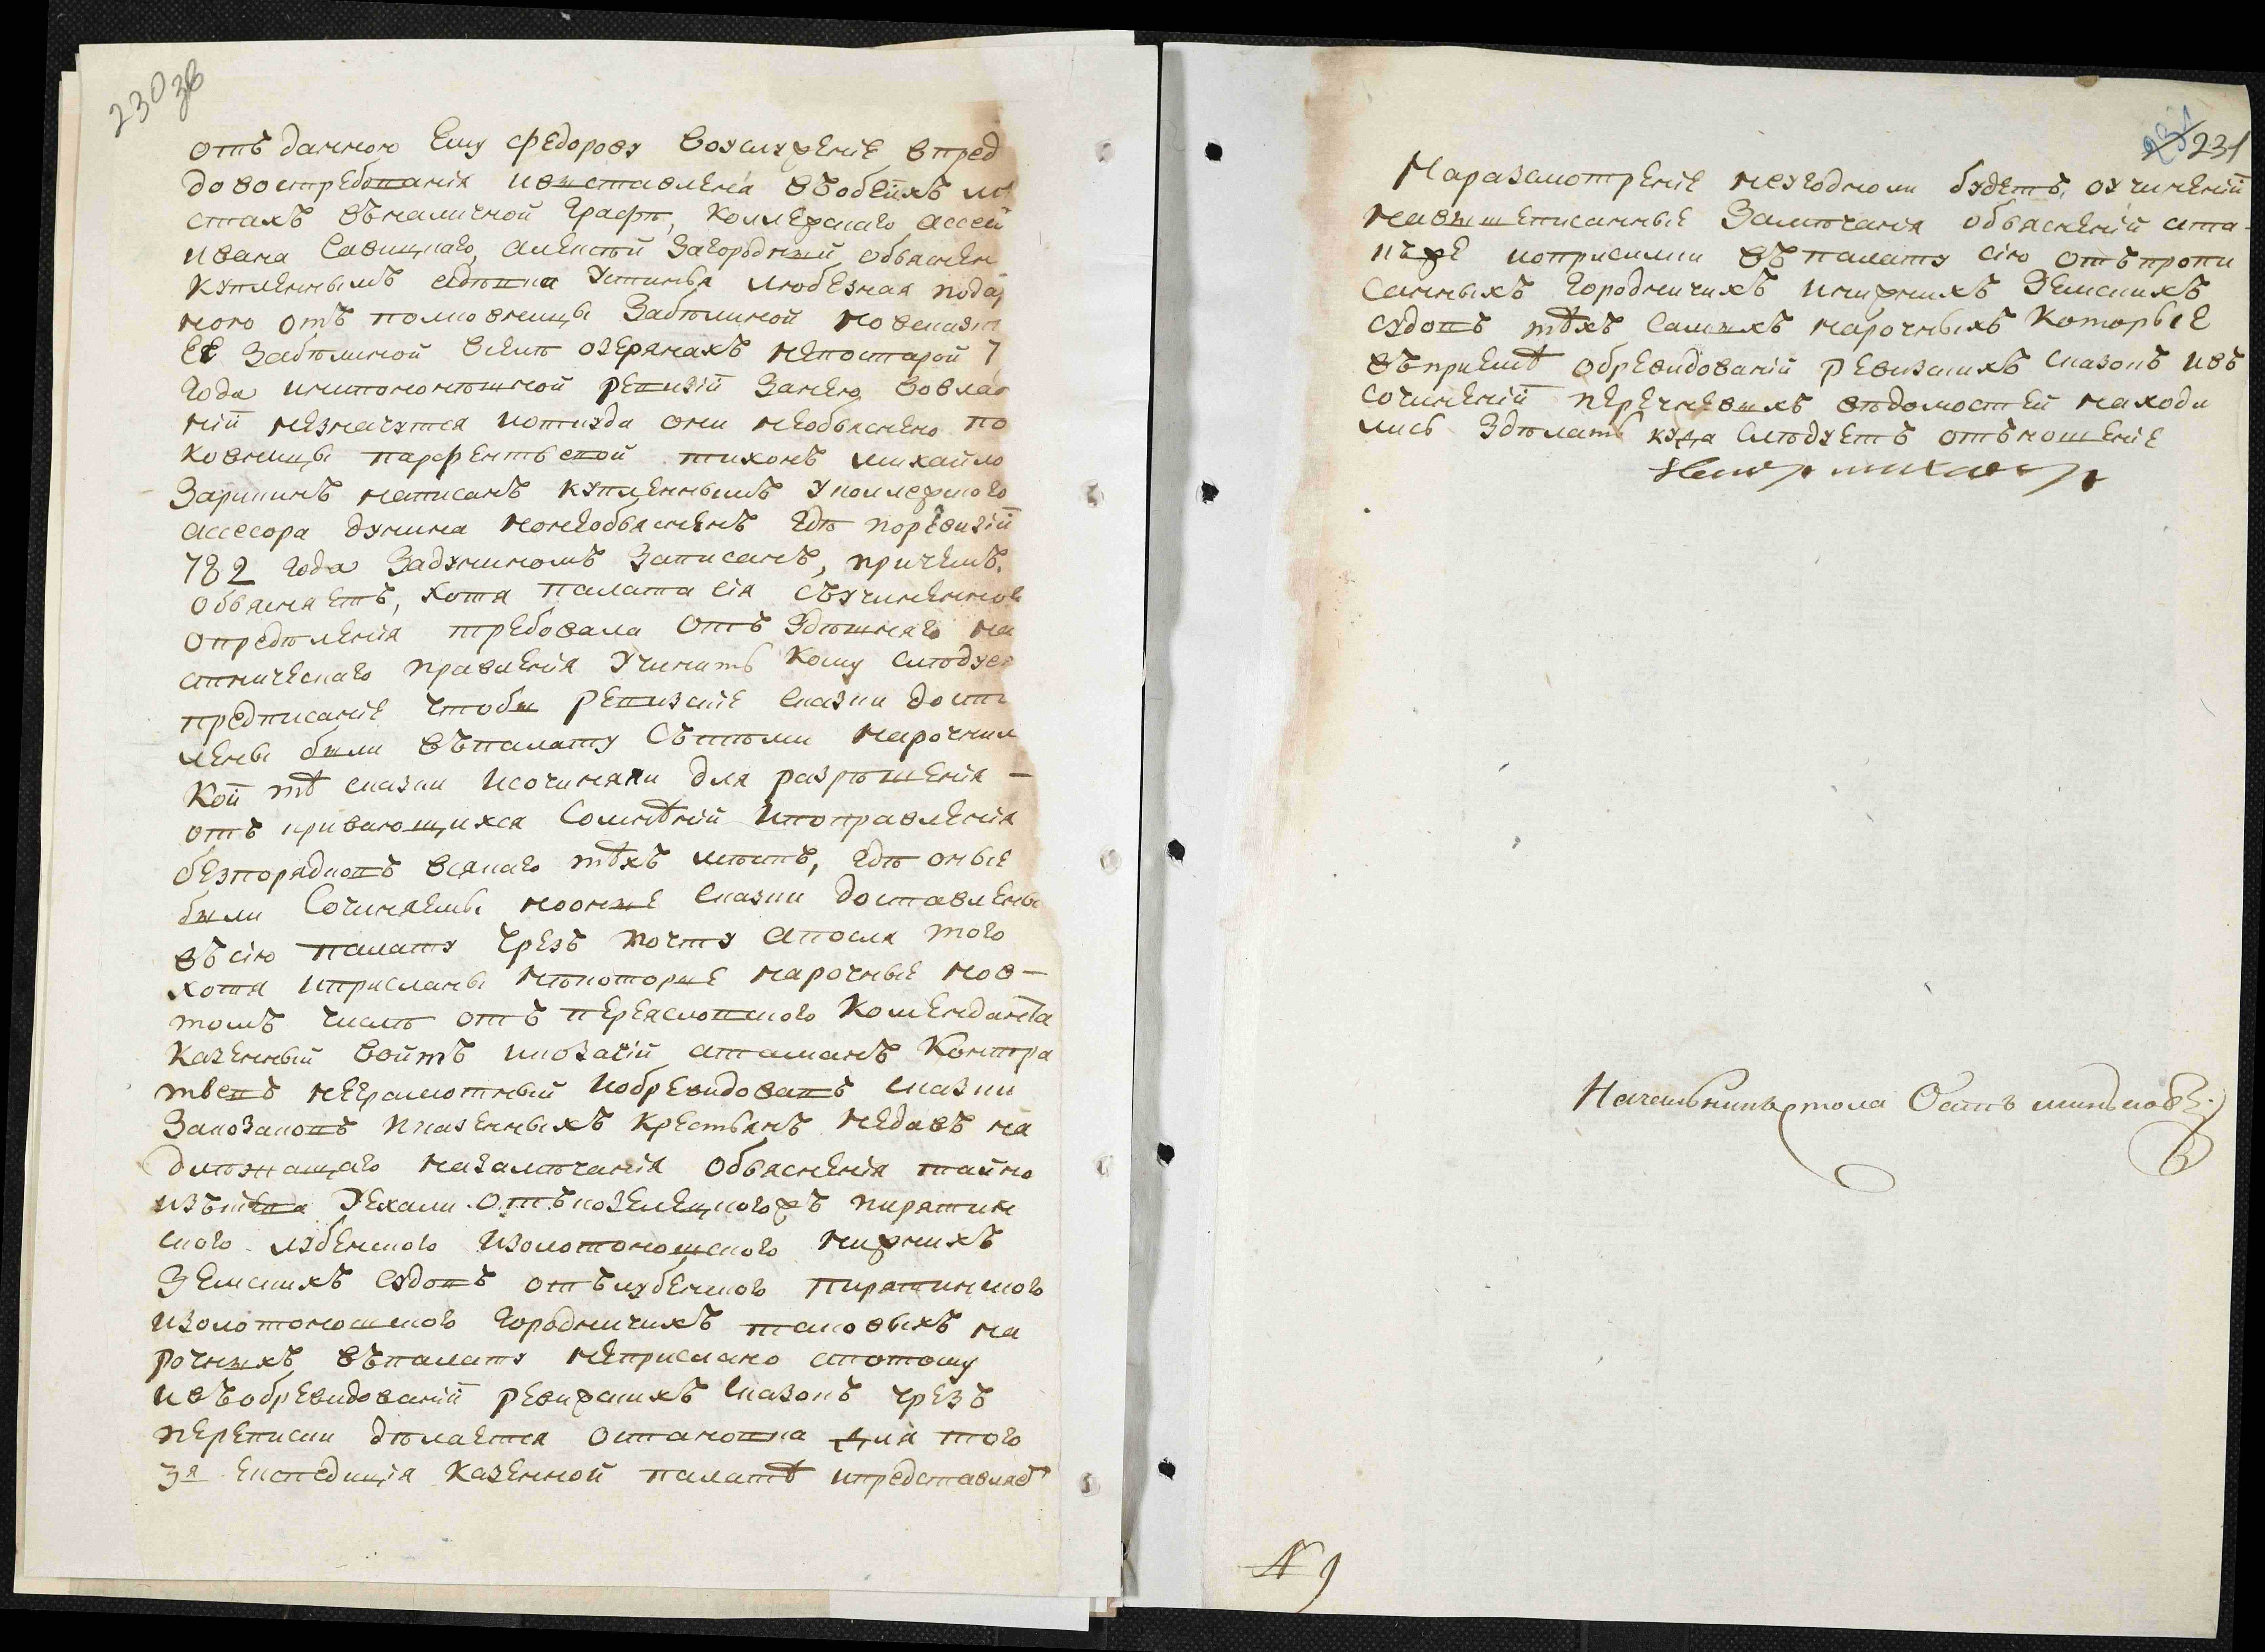 230 зв
отъ данною Ему Федорову вооуслужение впред
до востребования и в ставления въ обеихъ мѣ
стахъ въ наличной Графѣ, Коллежскаго Ассе
Ивана Савицкаго, Алексѣй Загородный, объяснен
купленнымъ а дѣвка Устинья любезная пода
ною отъ полковницы Забѣлиной но в сказк
Ее Забѣлиной в селѣ озерянахъ непостарой 7
года ни по нонѣшной ревизіи за нею во вла
ніи незначутся и откуда они необъяснено по
ковницы парфентьевой тихонъ михайло
Зарипинъ написанъ купленнымъ у коллежского
Ассесора дунина но необъясненъ где по ревизіи
782 года За дуниномъ Записанъ, причемъ,
объясняетъ, хотя палата сія съ учиненног
определенія требовала отъ Здѣшняго на
стническаго правленія Учинить Кому слѣдуе
предписаніе чтобы ревизскіе сказки доста
лены были въ палату съ тѣми нарочным
кои тѣ сказки и сочиняли для разрѣшенія —
откривающихся сомнѣній и поправленія
безпорядковъ всякаго тѣхъ мѣстъ, гдѣ оные
были Сочиняемы но оные сказки доставлены
въ сію палату чрезъ почту а посля того
хотя и присланы нѣкоторые нарочные но в —
томъ числѣ отъ переясловского Коменданта
Казенный войтъ и козачій атаманъ Контра
товъ неграмотный и обревидовавъ сказки
За козаковъ и казенныхъ крестьянъ недавъ на
длѣжащаго на замѣчанія объясненія тайно
изъ Киева Уехали отъ козелецкого жъ пирятин
ского лубенского и золотоношского нижнихъ
Земскихъ судовъ отъ лубенского пирятинского
и золотоношского городничихъ таковыхъ на
рочныхъ въ палату неприслано а потому
и въ обревидованіи ревизскихъ сказокъ чрезъ
переписки дѣлается остановка для того
3я Експедиція Казенной палатѣ и представляет
231
На разсмотреніе неугодноли будетъ, о учиненіи
на вышеписанные Замѣчания объясненій а та
къ же и о присилки въ палату сію отъ пропи
санныхъ городничихъ и нижнихъ Земскихъ
судовъ тѣхъ самыхъ нарочныхъ которые
въ приемѣ обревидованій ревизскихъ сказокъ и въ
сочиненіи перечневыхъ вѣдомостей находи
лись Здѣлать куда слѣдуетъ отъношеніе
Начальникъ стола
N 9